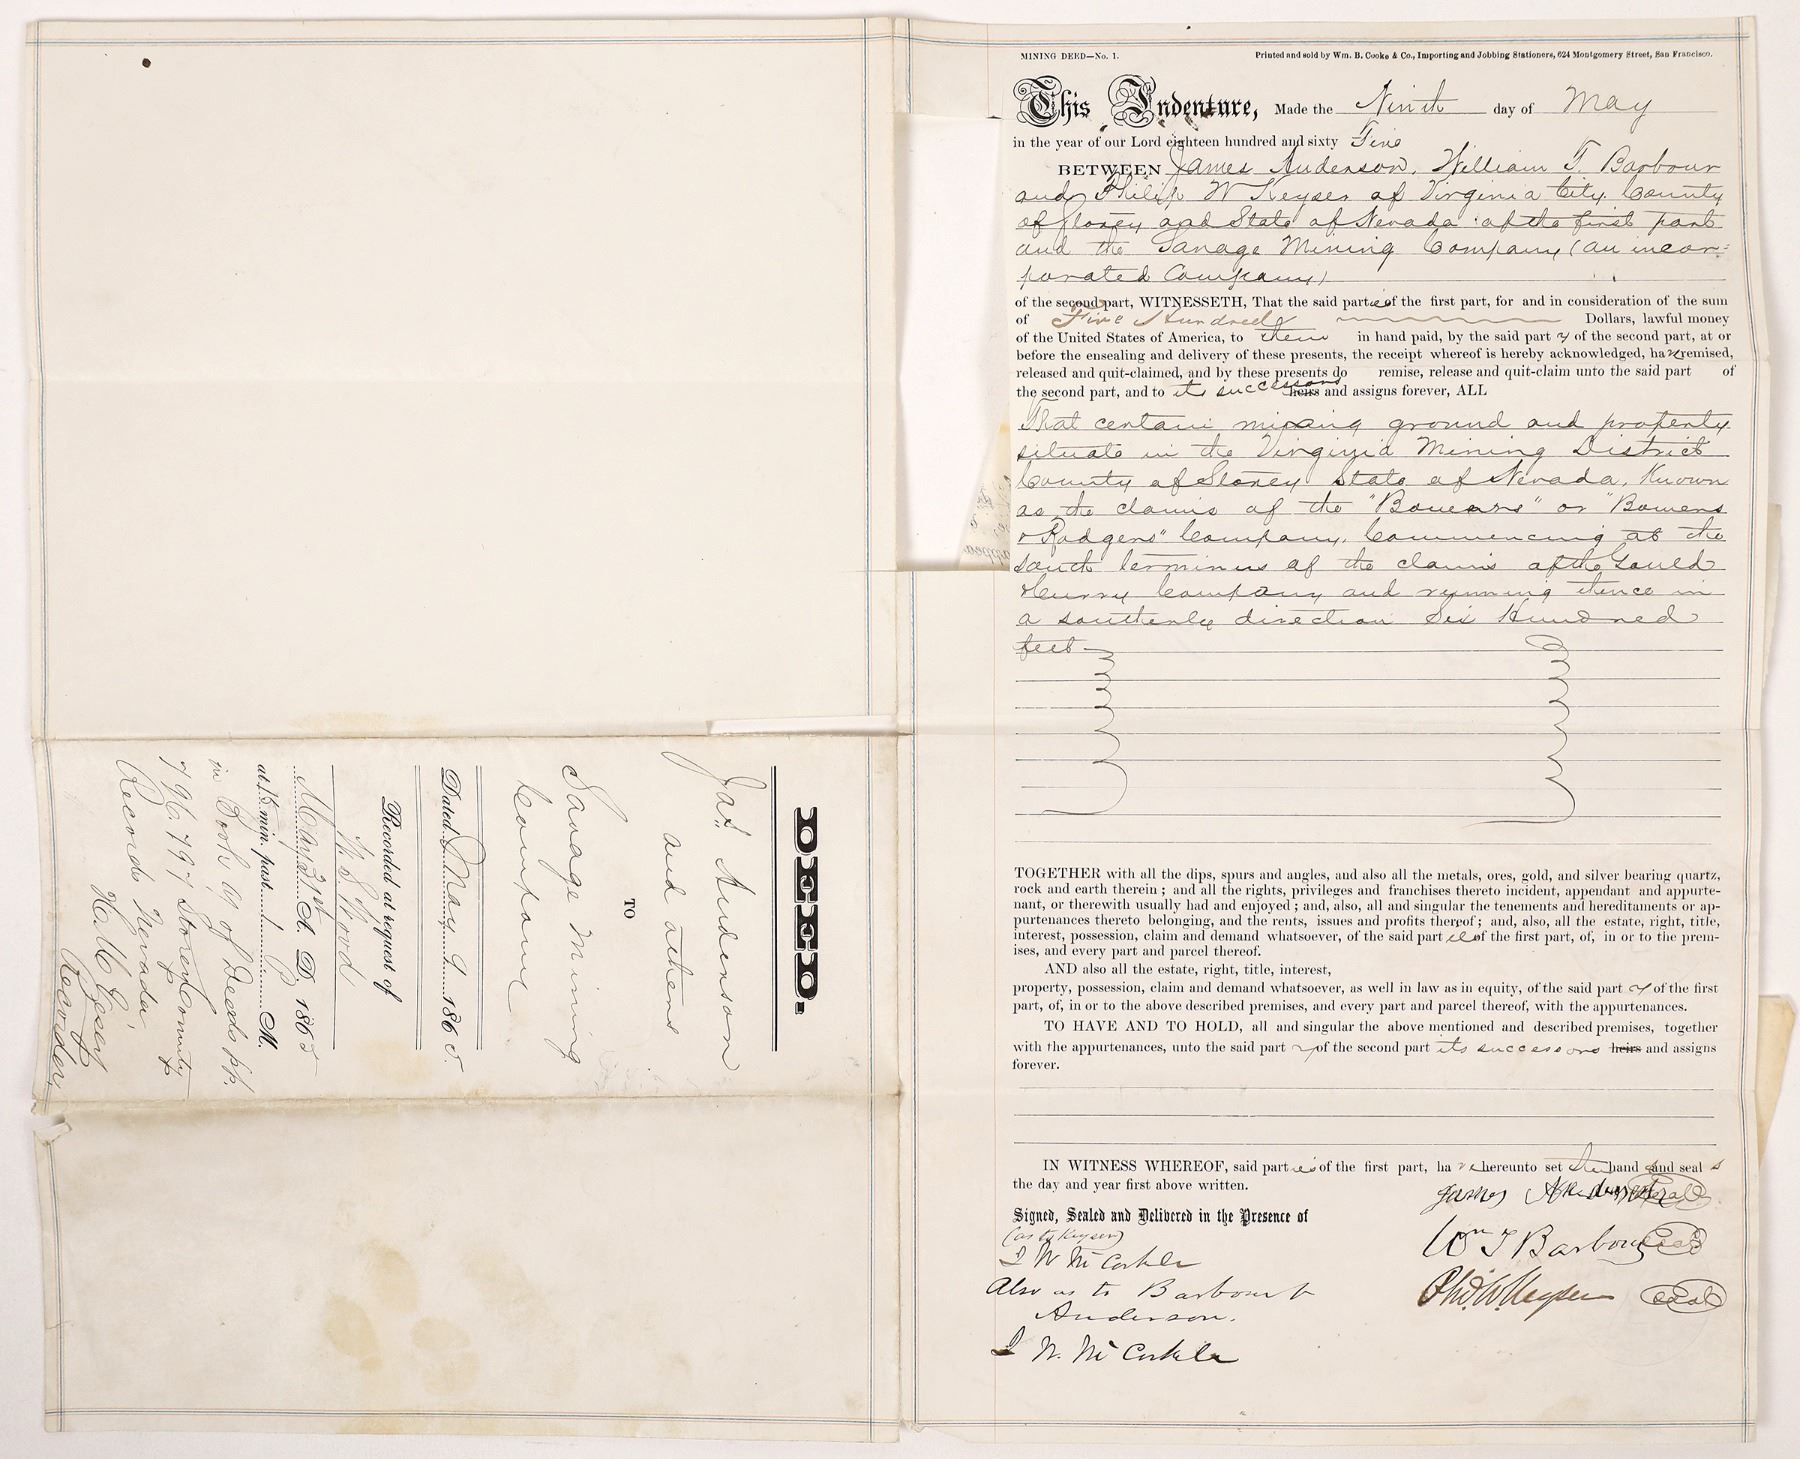 MINING DEED—No. 1.
Printed and sold by Wm. B. Cooke & Co., Importing and Jobbing Stationers, 624 Montgomery Street, San Francisco.
This Indenture, Made the Ninth day of May
in the year of our Lord eighteen hundred and sixty Five
BETWEEN James Anderson, William T. Barbour
and Philip W Keyser of Virginia City County
of Storey and State of Nevada of the first part
and the Savage Mining Company (an incor-
porated Company)
of the second part, WITNESSETH, That the said parties of the first part, for and in consideration of the sum
of Five Hundred Dollars, lawful money
of the United States of America, to them in hand paid, by the said part y of the second part, at or
before the ensealing and delivery of these presents, the receipt whereof is hereby acknowledged, have remised,
released and quit-claimed, and by these presents do remise, release and quit-claim unto the said part of
the second part, and to its successors heirs and assigns forever, ALL
That certain mining ground and property
situate in the Virginia Mining District
County of Storey State of Nevada, Known
as the claims of the "Bowers" or "Bowers
& Rodgers" Company, Commencing at the
south terminus of the claims of the Gould
& Curry Company and running thence in
a southerly direction Six Hundred
feet
TOGETHER with all the dips, spurs and angles, and also all the metals, ores, gold, and silver bearing quartz,
rock and earth therein; and all the rights, privileges and franchises thereto incident, appendant and appurte-
nant, or therewith usually had and enjoyed; and, also, all and singular the tenements and hereditaments or ap-
purtenances thereto belonging, and the rents, issues and profits thereof; and, also, all the estate, right, title,
interest, possession, claim and demand whatsoever, of the said part ies of the first part, of, in or to the prem-
ises, and every part and parcel thereof.
AND also all the estate, right, title, interest,
property, possession, claim and demand whatsoever, as well in law as in equity, of the said part y of the first
part, of, in or to the above described premises, and every part and parcel thereof, with the appurtenances.
TO HAVE AND TO HOLD, all and singular the above mentioned and described premises, together
with the appurtenances, unto the said part y of the second part its successors heirs and assigns
forever.
IN WITNESS WHEREOF, said parties of the first part, have hereunto set their hand s and seal s
the day and year first above written.
Signed, Sealed and Delivered in the Presence of
(as to Keyser)
J W McCorkle
Also as to Barbour &
Anderson.
J W. McCorkle
James Anderson Seal
Wm T Barbour Seal
Phil. W. Keyser Seal
DEED.
Jas. Anderson
and others
TO
Savage Mining
Company
Dated May 9 1865.
Recorded at request of
May 31st A. D. 1865
at 15 min. past 1 P M.
in Book of Deeds pp.
796, 797 Storey County
Records Nevada,
Recorder